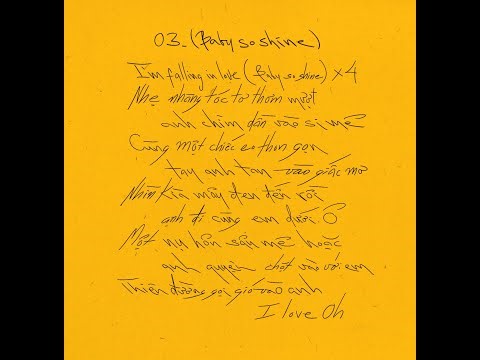 03_(Baby so shine)
I'm falling in love (Baby so shine) x4
Nhẹ nhàng tóc tơ thơm mượt
anh chìm dần vào si mê
Cùng một chiếc eo thon gọn
tay anh tan vào giấc mơ
Nhìn kìa mây đen đến rồi
anh đi cùng em dưới ô
Một nụ hôn say mê hoặc
anh quyện chặt vào với em
Thiên đường gọi gió vào anh
I love Oh